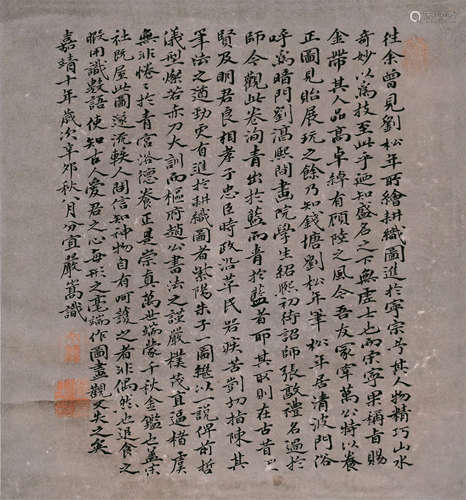 往余曾見劉松年所繪耕織圖進於寧宗考其人物精巧山水
奇妙以為技至此乎廼知盛名之下無虛士也而宗寧果稱旨賜
金帶其人品高卓綽有顧陸之風今吾友冢宰萬公特以養
正圖見貽展玩之餘乃知錢塘劉松年筆松年居清波門俗
呼為暗門劉淳熙間畫院學生紹熙初待詔師張敦禮名過於
師今觀此卷洵青出於藍而青於藍者耶其取則在古昔
賢及明君良相孝子忠臣時政沿革民若疾苦剴切指陳其
筆法之遒勁更有進於耕織圖者紫陽朱子一圖繼以一說俾前哲
儀型燦若赤刀大訓而樞府趙公書法之謹嚴樸茂直逼楷虞
無非惓惓於青宮浴德養正是崇真萬世端蒙千秋金鑑也蓋宗
社既屋此圖遂流軼人間信知神物自有呵護之者非偶然也退食之
暇用識數語使知古人愛君之心每形之毫端作圖畫觀又失之矣
嘉靖十年歲次辛卯秋八月分宜嚴嵩識